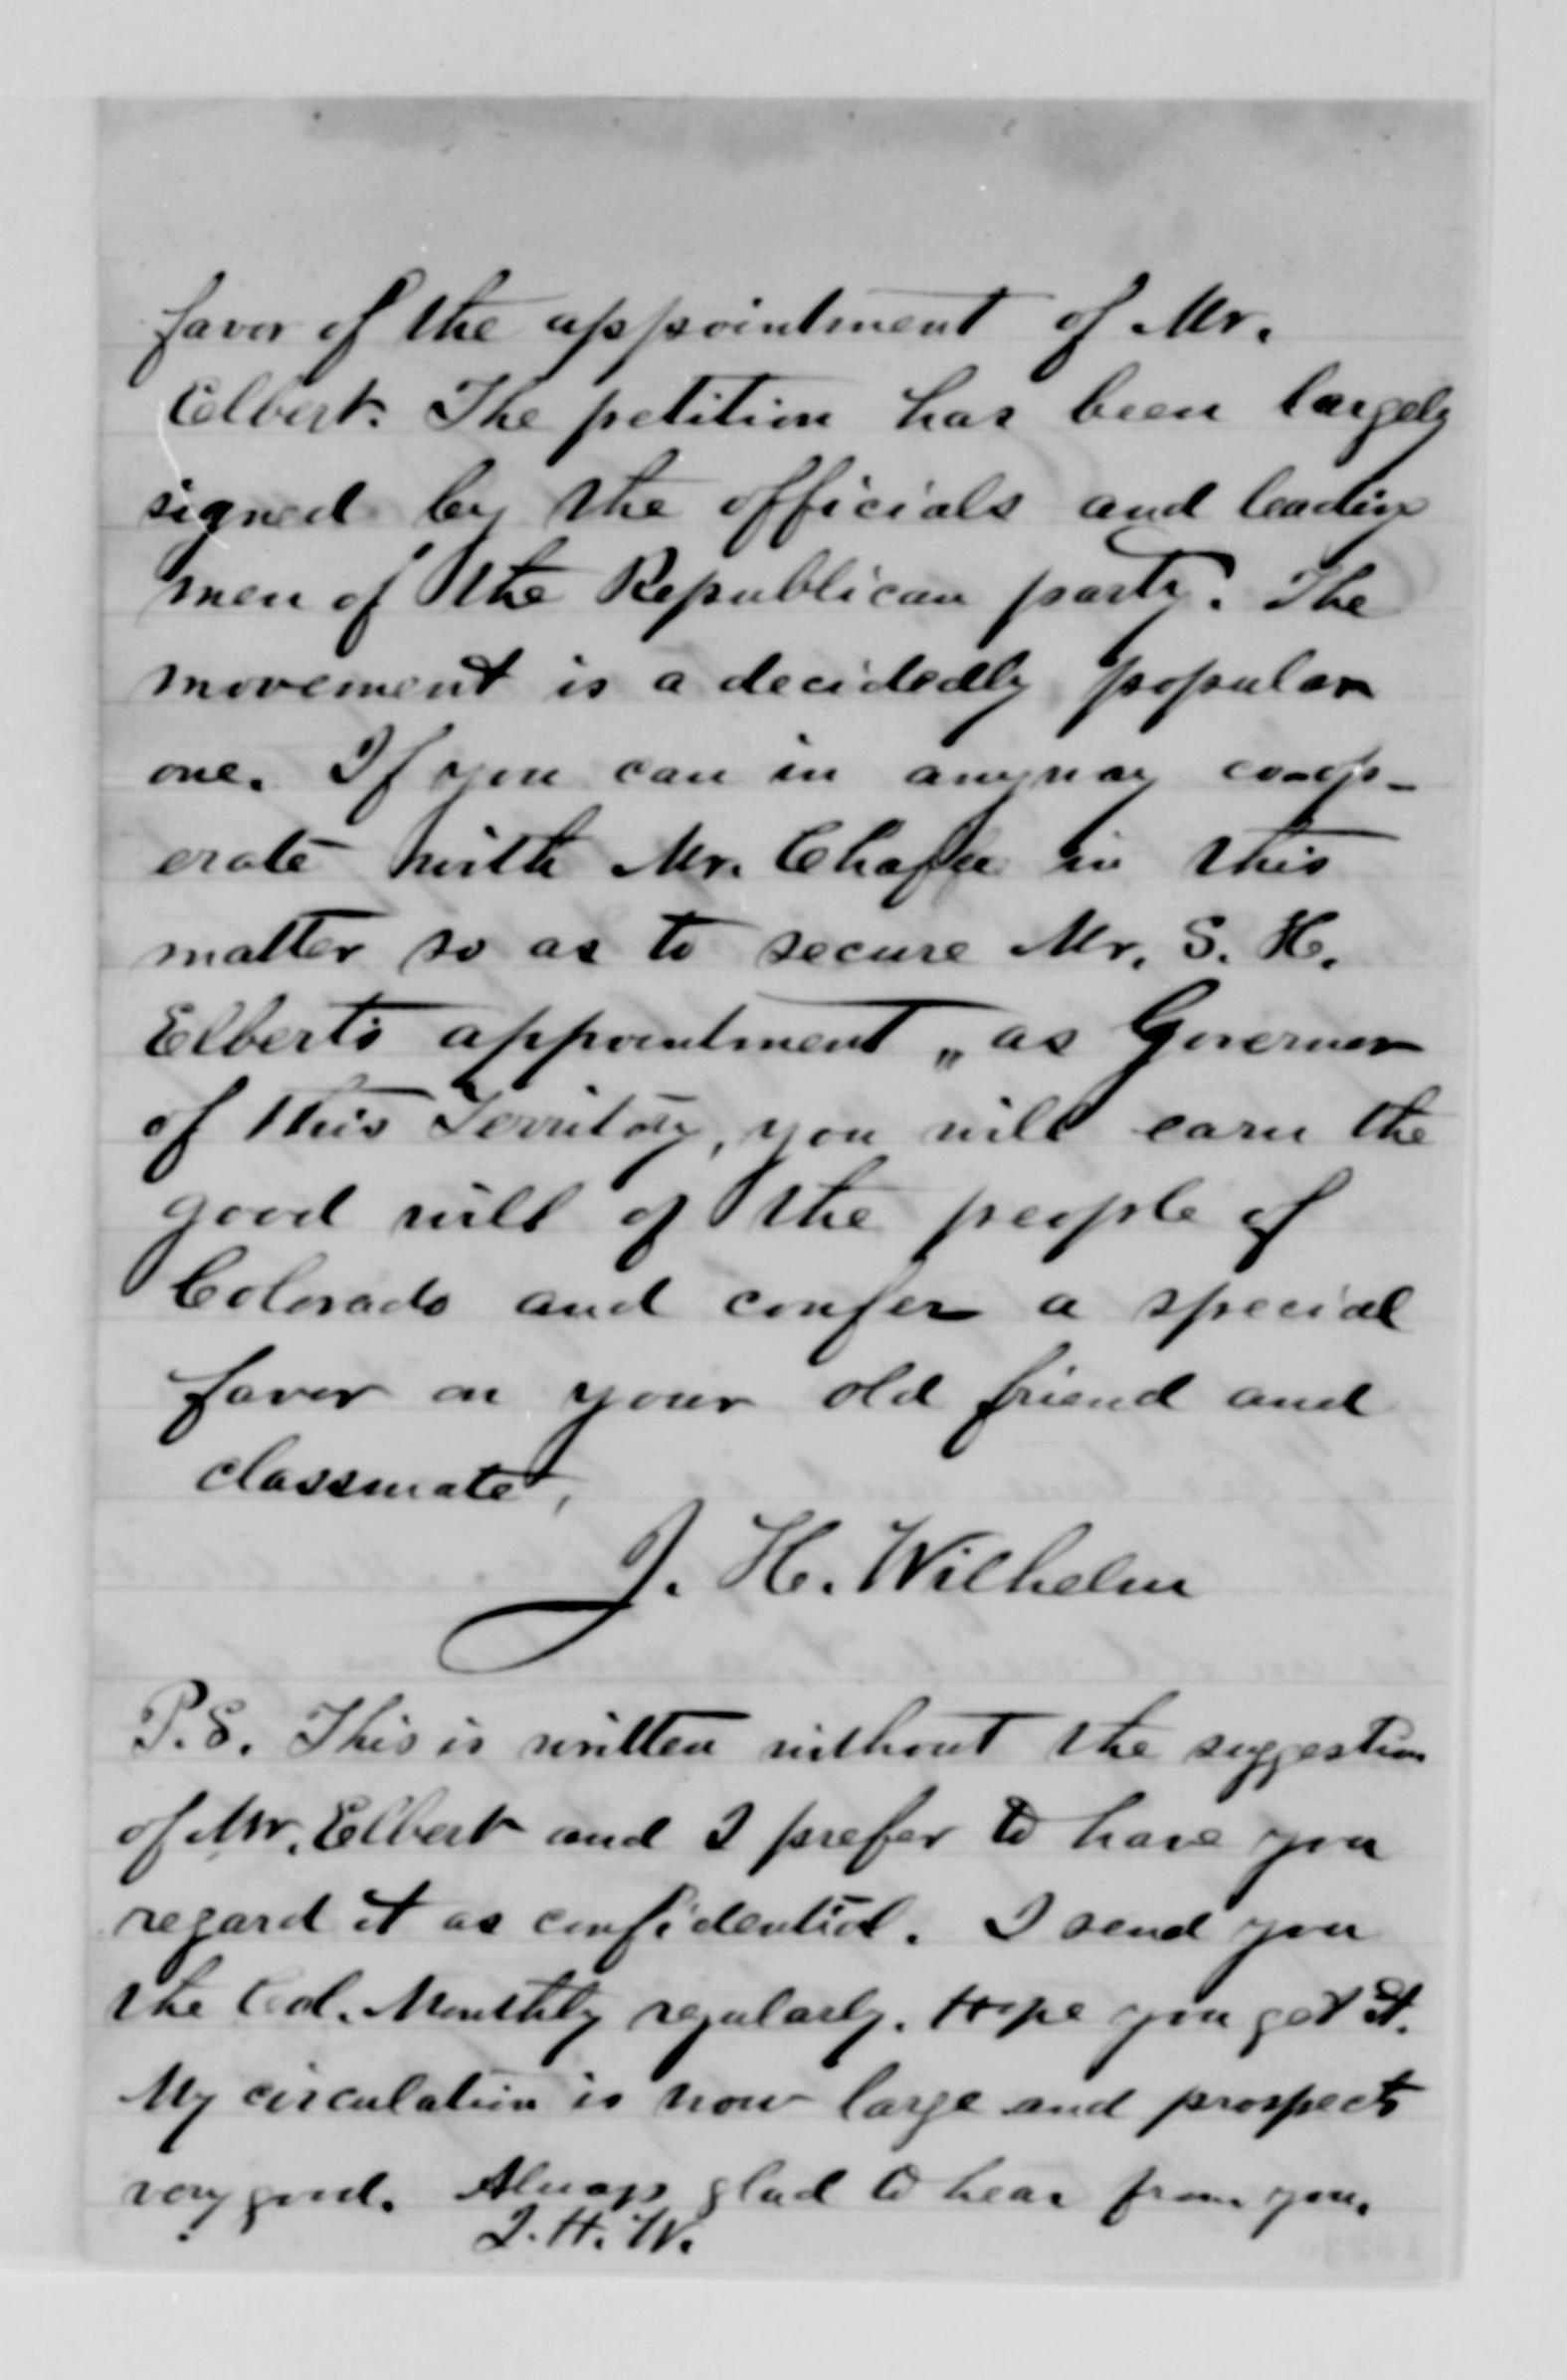 favor of the appointment of Mr.
Elbert. The petition has been largely
signed by the officials and leading
men of the Republican party. The
movement is a decidedly popular
one. If you can in anyway coop-
erate with Mr. Chaffee in this
matter so as to secure Mr. S. H.
Elbert's appointment „ as Governor
of this Territory, you will earn the
good will of the people of
Colorado and confer a special
favor on your old friend and
classmate,
J. H. Wilhelm
P.S. This is written without the suggestion
of Mr. Elbert and I prefer to have you
regard it as confidential. I send you
the Col. Monthly regularly. Hope you get it.
My circulation is now large and prospects
very good. Always glad to hear from you.
J. H. W.